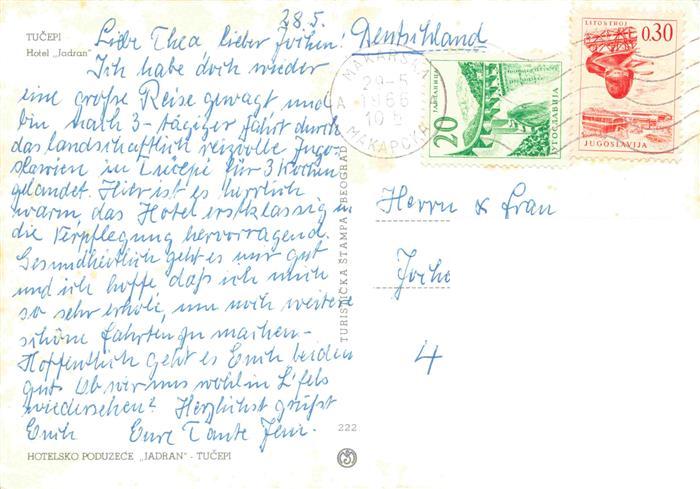 TUČEPI
Hotel „Jadran"
28.5.
Liebe Thea lieber Jochen!
Ich habe doch wieder
eine große Reise gewagt und
bin nach 3-tägiger Fahrt durch
das landschaftlich reizvolle Jugo-
slawien in Tučepi für 3 Wochen
gelandet. Hier ist es herrlich
warm, das Hotel erstklassig u
die Verpflegung hervorragend.
Gesundheitlich geht es mir gut
und ich hoffe, daß ich mich
so sehr erhole, um noch weitere
schöne Fahrten zu machen-
Hoffentlich geht es Euch beiden
gut. Ob wir uns wohl in L'fels
wiedersehen? Herzlichst grüßt
Euch Eure Tante Jenn.
HOTELSKO PODUZEĆE „JADRAN" - TUČEPI
TURISTIČKA ŠTAMPA, BEOGRAD
222
Deutschland
MAKARSKA
29-5
1966
10
МАКАРСКА
20
ЈАБЛАНИЦА
ЈУГОСЛАВИЈА
LITOSTROJ
0.30
JUGOSLAVIJA
Herrn & Frau
Joche
4